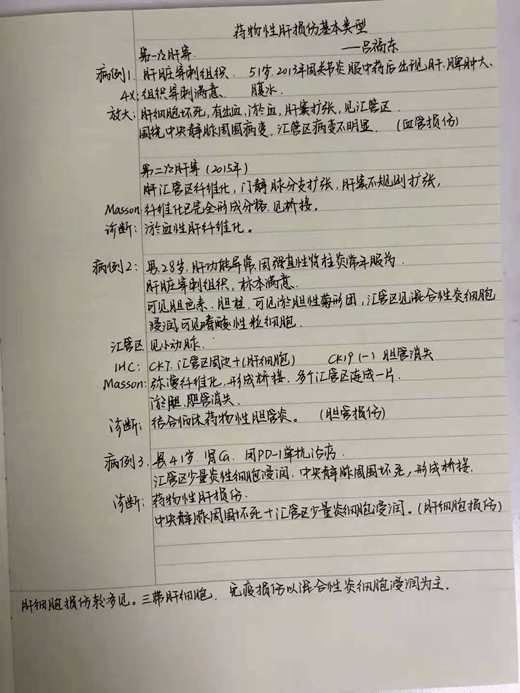 药物性肝损伤基本类型
——吕福东
第一次肝穿
病例1. 肝脏穿刺组织. 51岁. 2013年因关节炎服中药后出现肝、脾肿大、
4x: 组织穿刺满意. 腹水.
放大: 肝细胞坏死, 有出血, 淤血, 肝窦扩张, 见汇管区.
围绕中央静脉周围病变, 汇管区病变不明显. (血管损伤)
第二次肝穿 (2015年)
肝汇管区纤维化, 门静脉分支扩张, 肝窦不规则扩张,
Masson: 纤维化已完全形成分格. 见桥接,
诊断: 淤血性肝纤维化。
病例2: 男、28岁. 肝功能异常, 因强直性脊柱炎常年服药.
肝脏穿刺组织, 标本满意.
可见胆色素. 胆栓, 可见淤胆性菊形团, 汇管区见混合性炎细胞
浸润, 可见嗜酸性粒细胞.
汇管区 见小动脉.
IHC: CK7. 汇管区周边+(肝细胞) CK19 (-) 胆管消失
Masson: 弥漫纤维化, 形成桥接. 多个汇管区连成一片.
淤胆, 胆管消失.
诊断: 结合临床药物性胆管炎。 (胆管损伤)
病例3. 男41岁. 肾Ca. 用PD-1单抗治疗.
汇管区少量炎性细胞浸润. 中央静脉周围坏死, 形成桥接.
诊断: 药物性肝损伤.
中央静脉周围坏死+汇管区少量炎细胞浸润。(肝细胞损伤)
肝细胞损伤较多见。三带肝细胞. 免疫损伤以混合性炎细胞浸润为主.